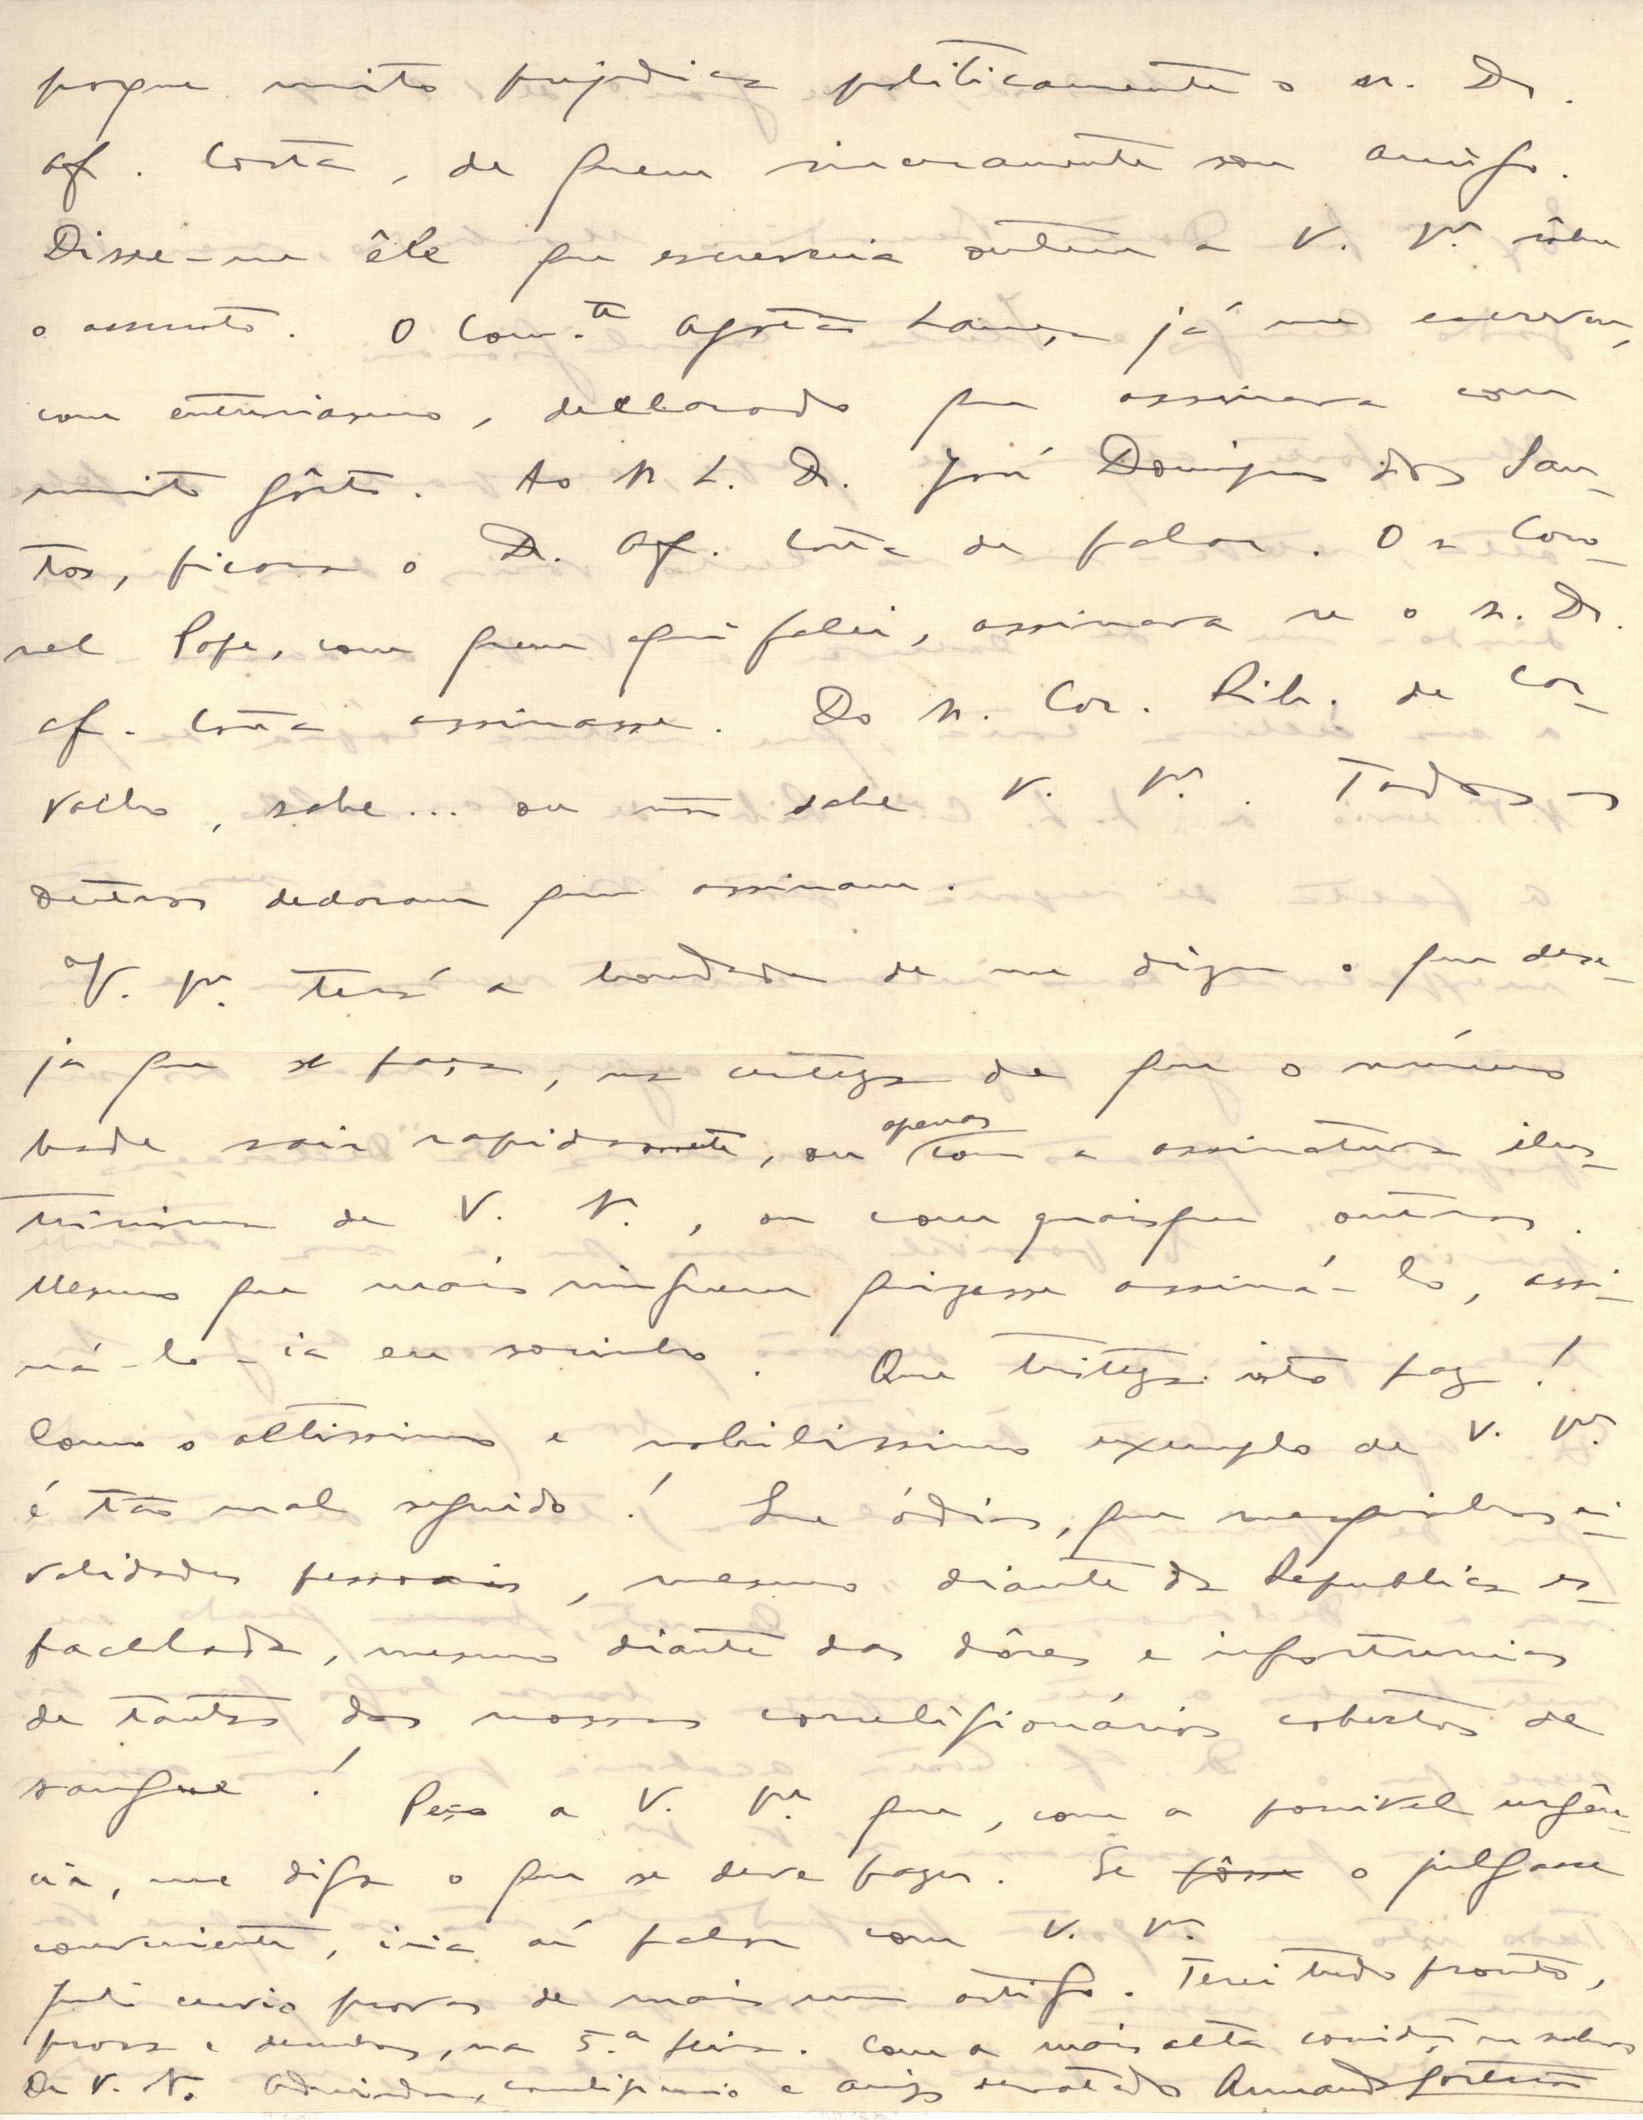 porque muito prejudica politicamente o sr. Dr.
Af. Costa, de quem sinceramente sou amigo.
Disse-me êle que escreveria ontem a V. Exª sôbre
o assunto. O Com.te Agatão Lança já me escreveu,
com entusiasmo, declarando que assinava com
muito gôsto. Ao sr. Dr. José Domingues dos San-
tos, ficara o Dr. Af. Costa de falar. O sr Coro-
nel Pope, com quem aqui falei, assinava se o sr. Dr.
Af. Costa assinasse. Do sr. Cor. Rib. de Car-
valho, sabe... ou não sabe V. Exª. Todos os
outros declaram que assinam.
V. Exª. terá a bondade de me dizer o que dese-
ja que se faça, na certeza de que o número
hade sair rapidamente, ou apenas com a assinatura ilus-
trissima de V. Exª., ou com quaisquer outras.
Mesmo que mais ninguem quizesse assiná-lo, assi-
ná-lo-ia eu sosinho. Que tristeza isto faz!
Como o altissimo e nobilissimo exemplo de V. Exª.
é tão mal seguido! Que ódios, que mesquinhas ri-
validades pessoais, mesmo diante da Republica es-
facelada, mesmo diante das dôres e infortunios
de tantos dos nossos correligionários cobertos de
sangue! Peço a V. Exª que, com a possivel urgên-
cia, me diga o que se deve fazer. Se fôsse o julgasse
conveniente, iria aí falar com V. Exª.
Junto envio provas de mais um artigo. Terei tudo pronto,
prosa e desenhos, na 5.ª feira. Com a mais alta
De V. Exª. admirador, e amigo devotado Armando Cortesão